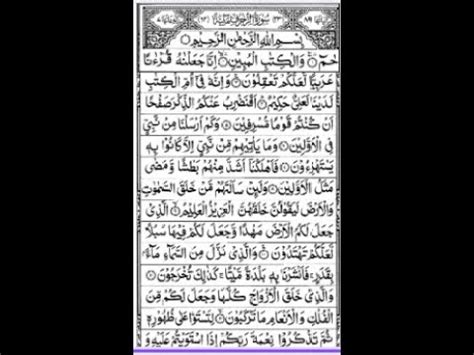 اٰيَاتُهَا ٨٩ (٤٣) سُوْرَةُ الزُّخْرُفِ مَكِّيَّةٌ (٦٣) رُكُوْعَاتُهَا ٧
بِسْمِ اللهِ الرَّحْمٰنِ الرَّحِيْمِ
حٰمٓ۝ وَالْكِتٰبِ الْمُبِيْنِ۝ اِنَّا جَعَلْنٰهُ قُرْءٰنًا
عَرَبِيًّا لَّعَلَّكُمْ تَعْقِلُوْنَ۝ وَاِنَّهٗ فِيْٓ اُمِّ الْكِتٰبِ
لَدَيْنَا لَعَلِيٌّ حَكِيْمٌ۝ اَفَنَضْرِبُ عَنْكُمُ الذِّكْرَ صَفْحًا
اَنْ كُنْتُمْ قَوْمًا مُّسْرِفِيْنَ۝ وَكَمْ اَرْسَلْنَا مِنْ نَّبِيٍّ
فِي الْاَوَّلِيْنَ۝ وَمَا يَاْتِيْهِمْ مِّنْ نَّبِيٍّ اِلَّا كَانُوْا بِهٖ
يَسْتَهْزِءُوْنَ۝ فَاَهْلَكْنَآ اَشَدَّ مِنْهُمْ بَطْشًا وَّمَضٰى
مَثَلُ الْاَوَّلِيْنَ۝ وَلَئِنْ سَاَلْتَهُمْ مَّنْ خَلَقَ السَّمٰوٰتِ
وَالْاَرْضَ لَيَقُوْلُنَّ خَلَقَهُنَّ الْعَزِيْزُ الْعَلِيْمُ۝ الَّذِيْ
جَعَلَ لَكُمُ الْاَرْضَ مَهْدًا وَّجَعَلَ لَكُمْ فِيْهَا سُبُلًا
لَّعَلَّكُمْ تَهْتَدُوْنَ۝ وَالَّذِيْ نَزَّلَ مِنَ السَّمَآءِ مَآءًۢ
بِقَدَرٍ فَاَنْشَرْنَا بِهٖ بَلْدَةً مَّيْتًا كَذٰلِكَ تُخْرَجُوْنَ۝
وَالَّذِيْ خَلَقَ الْاَزْوَاجَ كُلَّهَا وَجَعَلَ لَكُمْ مِّنَ
الْفُلْكِ وَالْاَنْعَامِ مَا تَرْكَبُوْنَ۝ لِتَسْتَوٗا عَلٰى ظُهُوْرِهٖ
ثُمَّ تَذْكُرُوْا نِعْمَةَ رَبِّكُمْ اِذَا اسْتَوَيْتُمْ عَلَيْهِ وَ